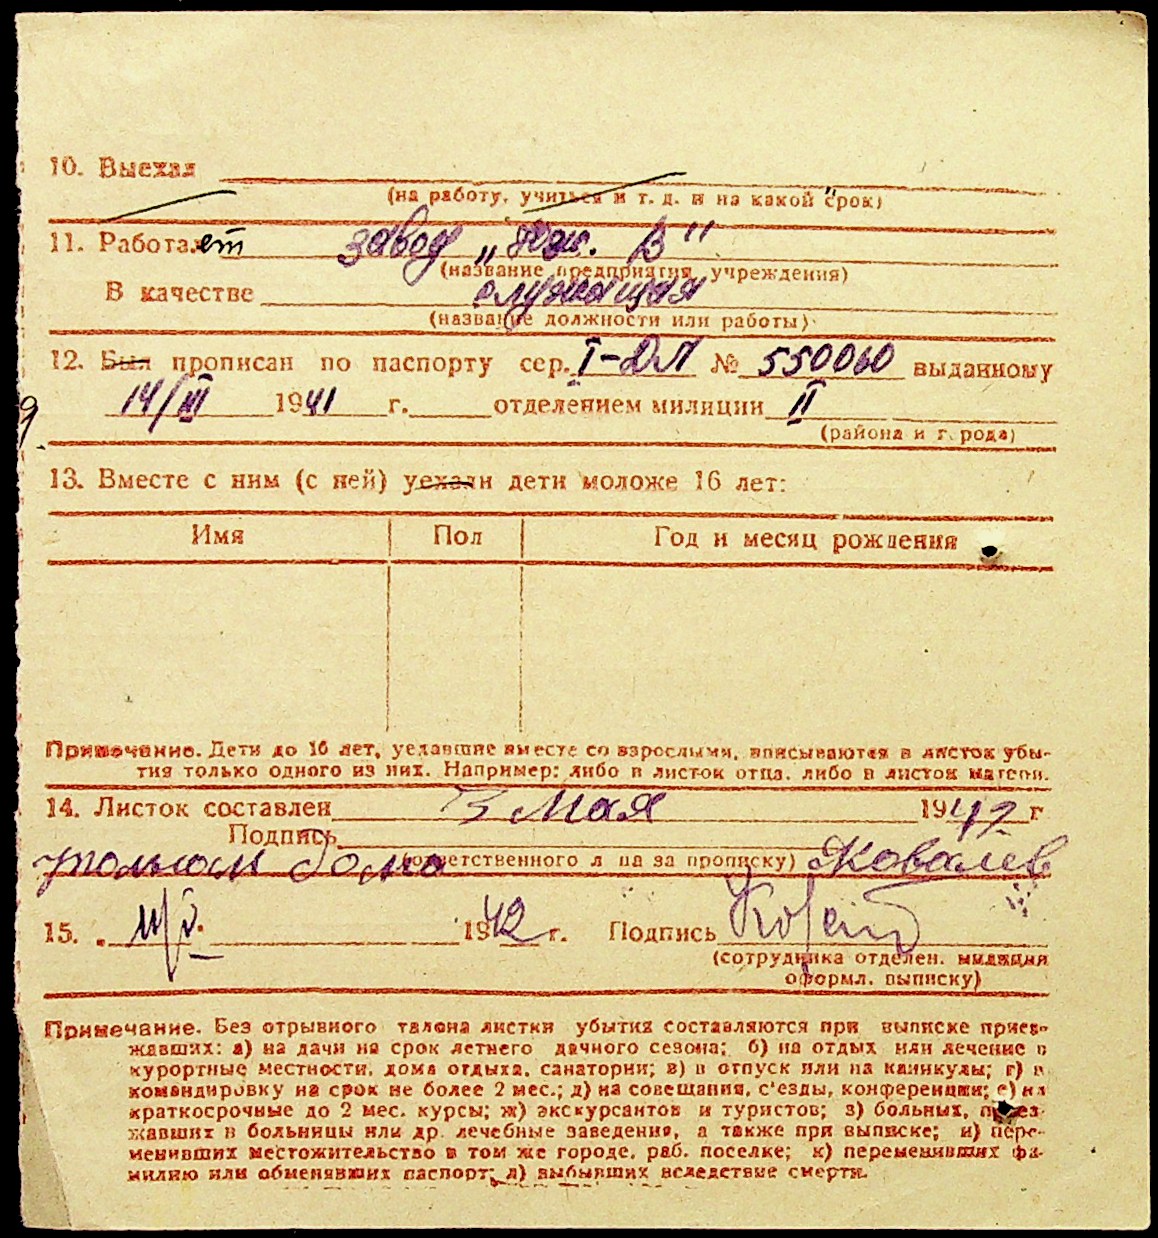 10. Выехал
(на работу, учиться и т. д. и на какой срок)
11. Работает завод „Юж. В"
(название предприятия, учреждения)
В качестве служащая
(название должности или работы)
12. Был прописан по паспорту сер. I-ДЛ № 550060 выданному
14/III 1941 г. отделением милиции II
(района и города)
13. Вместе с ним (с ней) уехали дети моложе 16 лет:
Имя Пол Год и месяц рождения
Примечание. Дети до 16 лет, уехавшие вместе со взрослыми, вписываются в листок убы-
тия только одного из них. Например: либо в листок отца, либо в листок матери.
14. Листок составлен 3 Мая 1942 г
Подпись
(ответственного лица за прописку) Ковалев
15. 1942 г. Подпись
(сотрудника отделен. милиции
оформл. выписку)
Примечание. Без отрывного талона листки убытия составляются при выписке приез-
жавших: а) на дачи на срок летнего дачного сезона; б) на отдых или лечение в
курортные местности, дома отдыха, санатории; в) в отпуск или на каникулы; г) в
командировку на срок не более 2 мес.; д) на совещания, с'езды, конференции; е) на
краткосрочные до 2 мес. курсы; ж) экскурсантов и туристов; з) больных, приез-
жавших в больницы или др. лечебные заведения, а также при выписке; и) пере-
менивших местожительство в том же городе, раб. поселке; к) переменивших фа-
милию или обменявших паспорт; л) выбывших вследствие смерти.